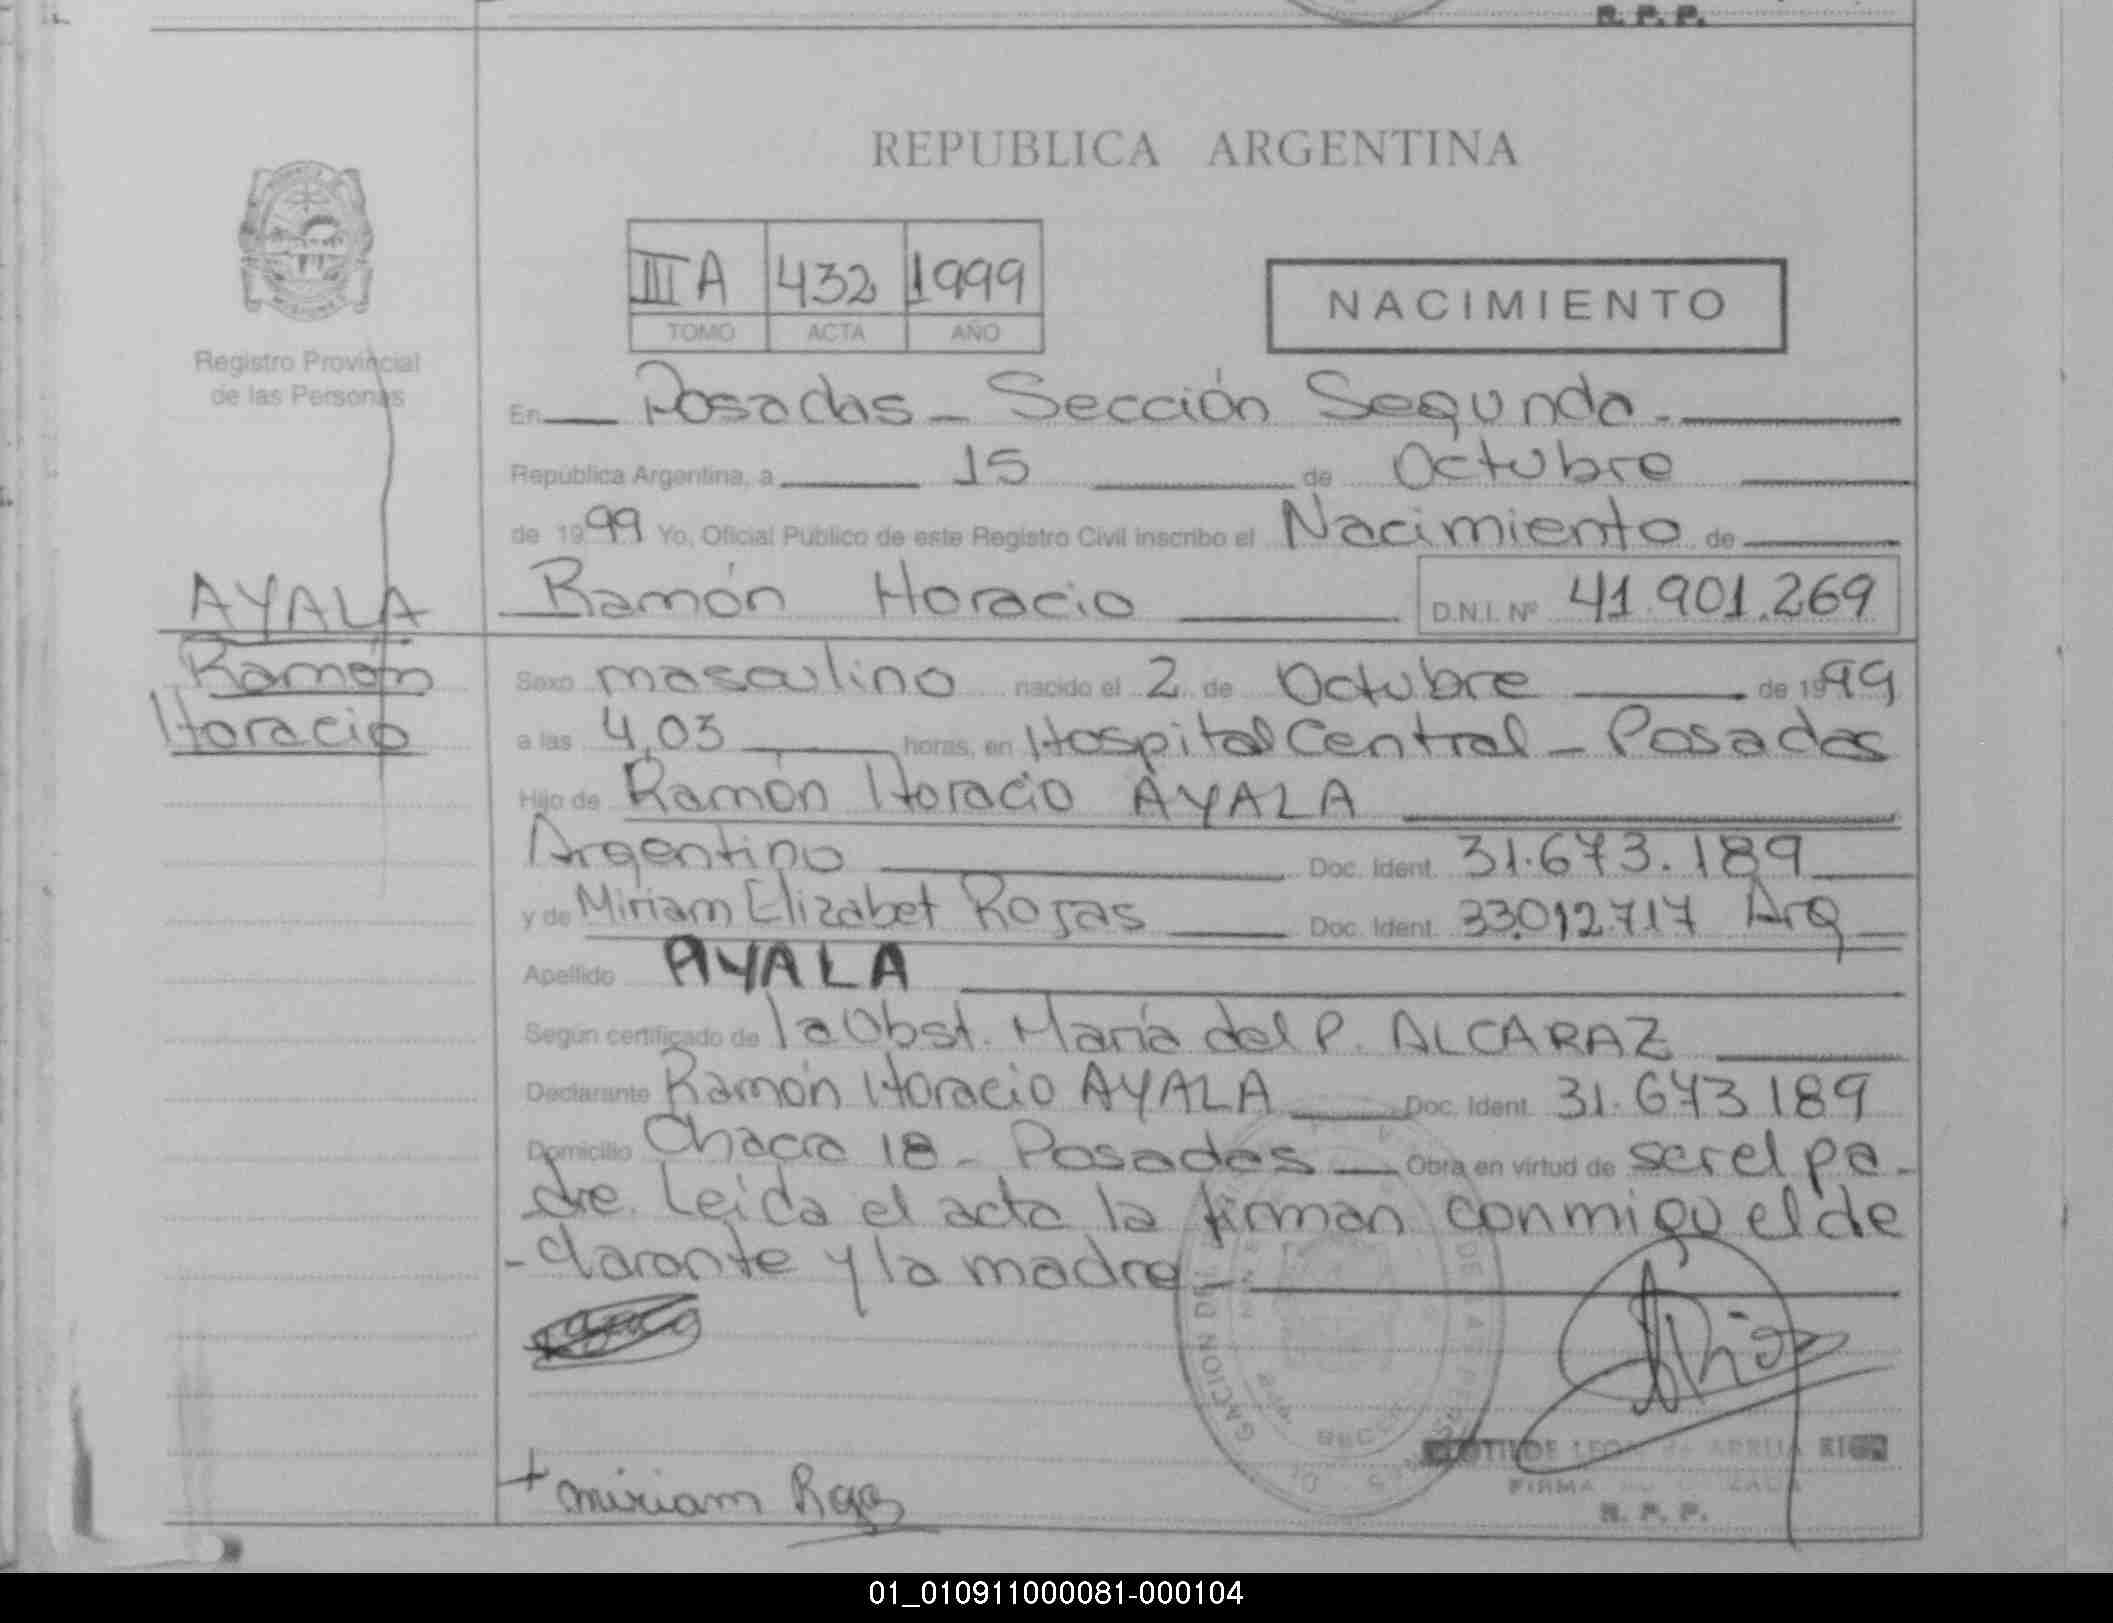 R. P. P.
REPUBLICA ARGENTINA
IIIA 432 1999
TOMO ACTA AÑO
NACIMIENTO
Registro Provincial
de las Personas
En Posadas - Sección Segunda.
República Argentina, a 15 de Octubre
de 1999 Yo, Oficial Público de este Registro Civil inscribo el Nacimiento de
Ramón Horacio D.N.I. Nº 41.901.269
AYALA
Ramón
Horacio
Sexo masculino nacido el 2 de Octubre de 1999
a las 4,03 horas, en Hospital Central - Posadas
Hijo de Ramón Horacio AYALA
Argentino Doc. Ident. 31.673.189
y de Miriam Elizabet Rojas Doc. Ident. 33.012.717 Arg
Apellido AYALA
Según certificado de la Obst. María del P. ALCARAZ
Declarante Ramón Horacio AYALA Doc. Ident. 31.673.189
Domicilio Chacra 18 - Posadas Obra en virtud de ser el pa-
dre. Leida el acta la firman conmigo el de
-clarante y la madre -
+ miriam Rojas
CLOTILDE LEON
FIRMA
R. P. P.
01_010911000081-000104